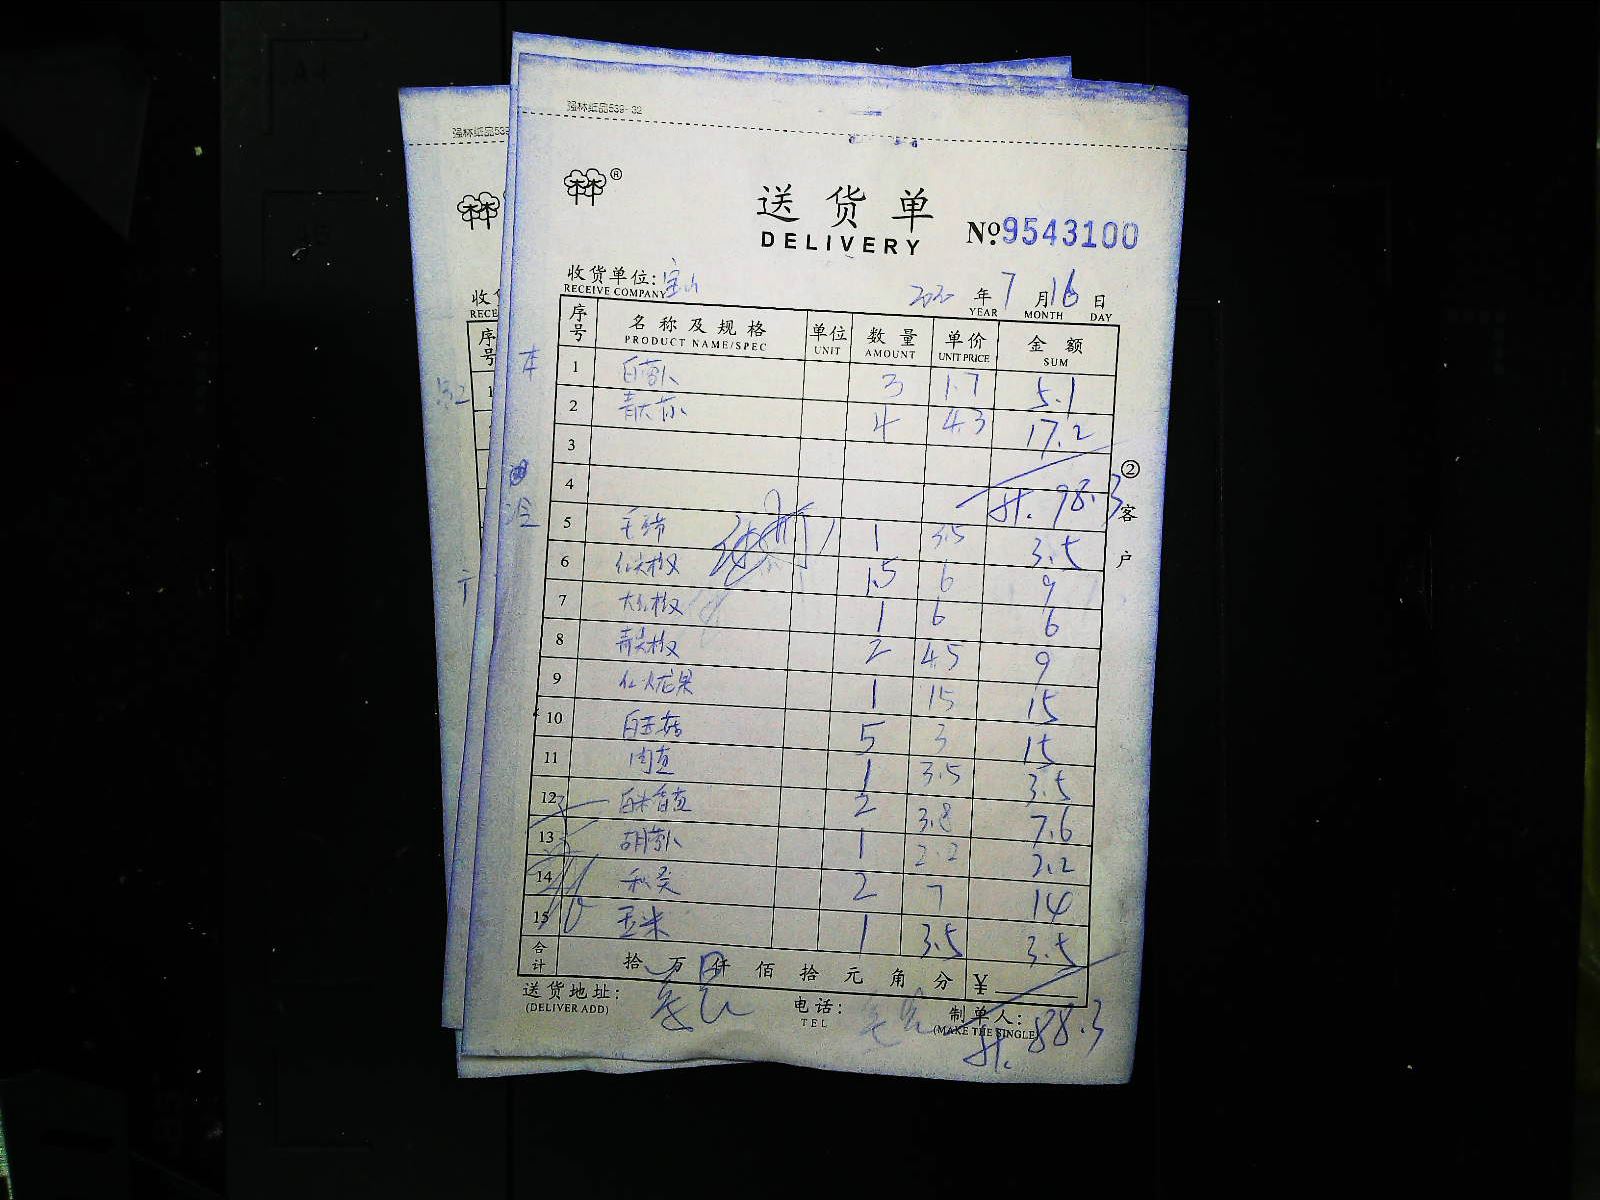 强林纸品539-32
强林纸品539
林林®
送货单
DELIVERY
№9543100
收货单位:宝山
RECEIVE COMPANY
2020 年 7 月 16 日
YEAR MONTH DAY
收
RECE
序号 名称及规格 单位 数量 单价 金额
PRODUCT NAME/SPEC UNIT AMOUNT UNIT PRICE SUM
序号
本
1 白萝卜 3 1.7 5.1
2 青大 4 4.3 17.2
3
4 98.3
冷
5 1 3.5 3.5
6 红尖椒 1.5 6 9
7 大红椒 1 6 6
8 青尖椒 2 4.5 9
9 红火龙果 1 15 15
10 白玉菇 5 3 15
11 1 3.5 3.5
12 2 3.8 7.6
13 胡萝卜 1 2.2 2.2
14 秋葵 2 7 14
15 玉米 1 3.5 3.5
合计 拾 万 仟 佰 拾 元 角 分 ¥
②客户
送货地址:
(DELIVER ADD)
电话:
TEL
制单人:
(MAKE THE SINGLE)
88.3